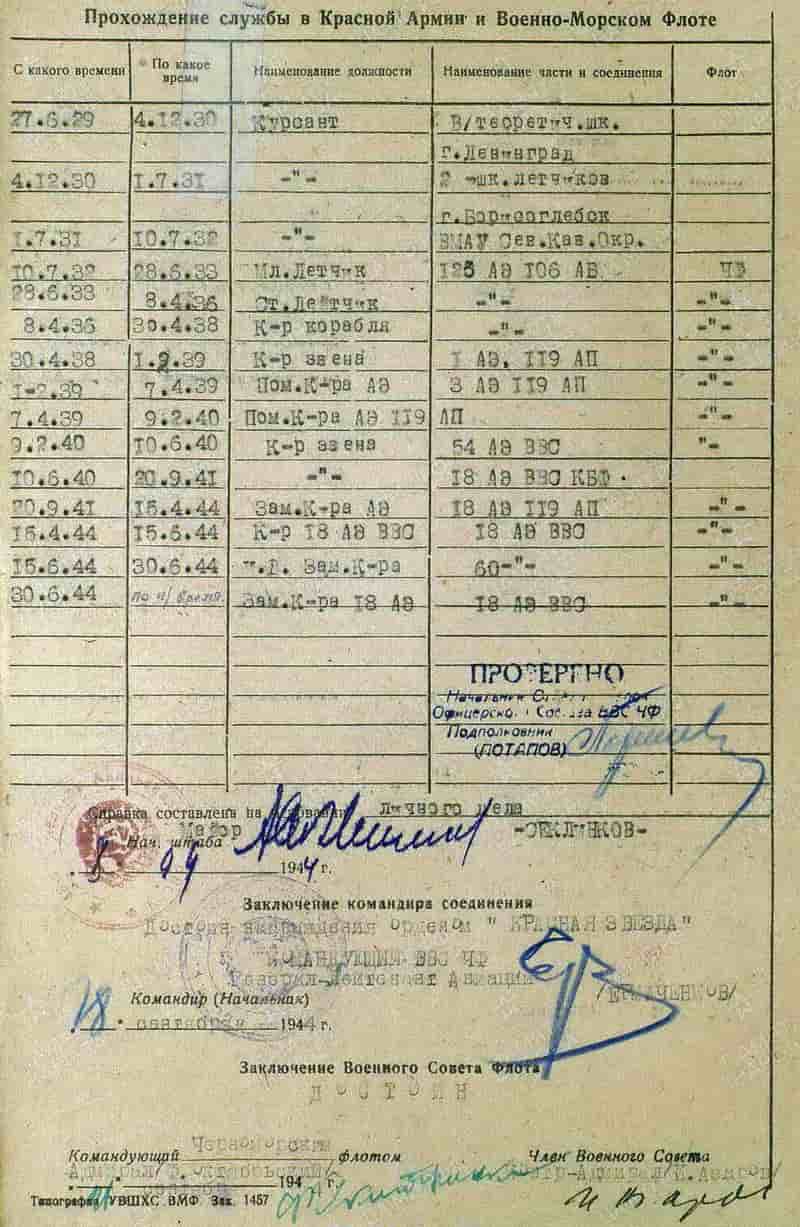 Прохождение службы в Красной Армии и Военно-Морском Флоте
С какого времени По какое время Наименование должности Наименование части и соединения Флот
27.6.29 4.12.30 Курсант В/теоретич.шк.
г.Ленинград
4.12.30 1.7.31 -"- 2 шк.летчиков
г.Борисоглебск
1.7.31 10.7.32 -"- ВМАУ Сев.Кав.Окр.
10.7.32 28.6.33 Мл.Летчик 125 АЭ 106 АБ. ЧФ
28.6.33 8.4.36 Ст.Летчик -"- -"-
8.4.36 30.4.38 К-р корабля -"- -"-
30.4.38 1.2.39 К-р звена 1 АЭ, 119 АП -"-
1-2.39 7.4.39 Пом.К-ра АЭ 3 АЭ 119 АП -"-
7.4.39 9.2.40 Пом.К-ра АЭ 119 АП -"-
9.2.40 10.6.40 К-р звена 54 АЭ ВВС "-
10.6.40 20.9.41 -"- 18 АЭ ВВС КБФ
20.9.41 15.4.44 Зам.К-ра АЭ 18 АЭ 119 АП -"-
15.4.44 15.6.44 К-р 18 АЭ ВВС 18 АЭ ВВС -"-
15.6.44 30.6.44 Зам.К-ра 60-"- -"-
30.6.44 по н/время. Зам.К-ра 18 АЭ 18 АЭ ВВС -"-
ПРОВЕРЕНО
Начальник
Офицерско. Состава ВВС ЧФ
Подполковник
(ПОТАПОВ)
Справка составлена на основании личного дела
Майор
Нач. штаба
1944 г.
Заключение командира соединения
Достоин награждения орденом "КРАСНАЯ ЗВЕЗДА"
КОМАНДУЮЩИЙ ВВС ЧФ
Генерал-Лейтенант Авиации
Командир (Начальник) /ЕРМАЧЕНКОВ/
"18" сентября 1944 г.
Заключение Военного Совета Флота
ДОСТОИН
Черноморским
Командующий флотом Член Военного Совета
Адмирал/Ф.Октябрьский/ Контр-Адмирал/И.Азаров/
194 г.
Типография УВШХС ВМФ Зак. 1457